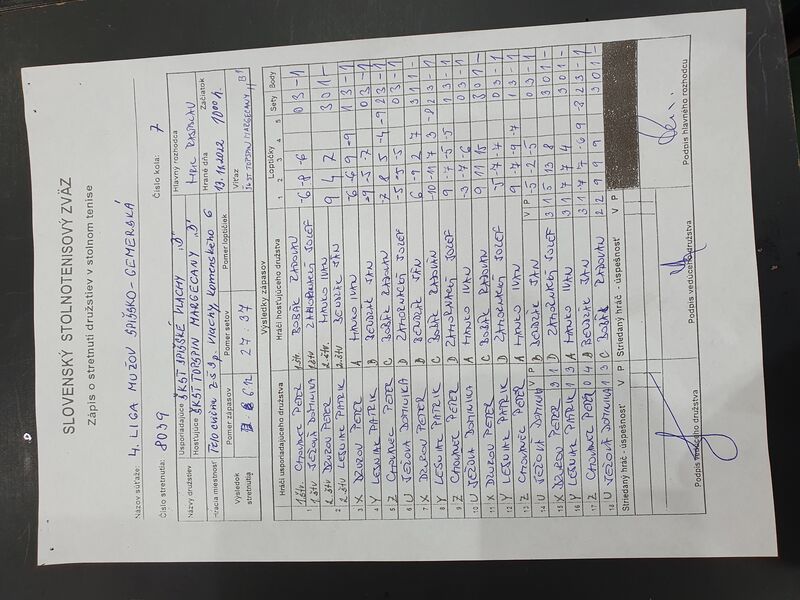 SLOVENSKÝ STOLNOTENISOVÝ ZVÄZ
Zápis o stretnutí družstiev v stolnom tenise
Názov súťaže: 4. LIGA MUŽOV SPIŠSKO-GEMERSKÁ
Číslo stretnutia: 8039 Číslo kola: 7
Názvy družstiev Usporiadajúce ŠKST SPIŠSKÉ VLACHY "D" Hlavný rozhodca
Hosťujúce ŠKST TOPSPIN MARGECANY "D" Hrané dňa Začiatok
Hracia miestnosť Telocvičňa ZŠ Sp. Vlachy Komenského 6 13.11.2022 1000 h
Výsledok stretnutia Pomer zápasov Pomer setov Pomer loptičiek Víťaz
6:12 27:37 ŠKST TOPSPIN MARGECANY "B"
Výsledky zápasov
Hráči usporiadajúceho družstva Hráči hosťujúceho družstva Loptičky Sety Body
1 2 3 4 5
1.štv CHOVANEC PETER 1.štv BOBÁK RADOVAN -6 -8 -6 0 3 - 1
1 1.štv JEŽOVÁ DOMINIKA 1.štv ZAHORNACKÝ JOZEF
2.štv DZUROV PETER 2.štv HANKO IVAN 9 4 7 3 0 1 -
2 2.štv LESNIAK PATRIK 2.štv BENDZÁK JÁN
3 X DZUROV PETER A HANKO IVAN -6 -6 9 -9 1 3 - 1
4 Y LESNIAK PATRIK B BENDZÁK JÁN -9 -5 -7 0 3 - 1
5 Z CHOVANEC PETER C BOBÁK RADOVAN 7 8 5 -4 -9 2 3 - 1
6 U JEŽOVÁ DOMINIKA D ZAHORNACKÝ JOZEF -5 -5 -5 0 3 - 1
7 X DZUROV PETER B BENDZÁK JÁN 6 -9 2 7 3 1 1 -
8 Y LESNIAK PATRIK C BOBÁK RADOVAN -10 -11 7 3 -8 2 3 - 1
9 Z CHOVANEC PETER D ZAHORNACKÝ JOZEF 9 -7 -5 -5 1 3 - 1
10 U JEŽOVÁ DOMINIKA A HANKO IVAN -3 -7 -6 0 3 - 1
11 X DZUROV PETER C BOBÁK RADOVAN 9 11 15 3 0 1 -
12 Y LESNIAK PATRIK D ZAHORNACKÝ JOZEF -5 -7 -7 0 3 - 1
13 Z CHOVANEC PETER A HANKO IVAN 9 -7 -9 -7 1 3 - 1
14 U JEŽOVÁ DOMINIKA V P B BENDZÁK JÁN V P -5 -2 -5 0 3 - 1
15 X DZUROV PETER 3 1 D ZAHORNACKÝ JOZEF 3 1 5 13 8 3 0 1 -
16 Y LESNIAK PATRIK 1 3 A HANKO IVAN 3 1 7 7 4 3 0 1 -
17 Z CHOVANEC PETER 0 4 B BENDZÁK JÁN 3 1
18 U JEŽOVÁ DOMINIKA 1 3 C BOBÁK RADOVAN 2 2 9 9 9 3 0 1 -
Striedaný hráč - úspešnosť V P Striedaný hráč - úspešnosť V P
Podpis vedúceho družstva Podpis vedúceho družstva Podpis hlavného rozhodcu